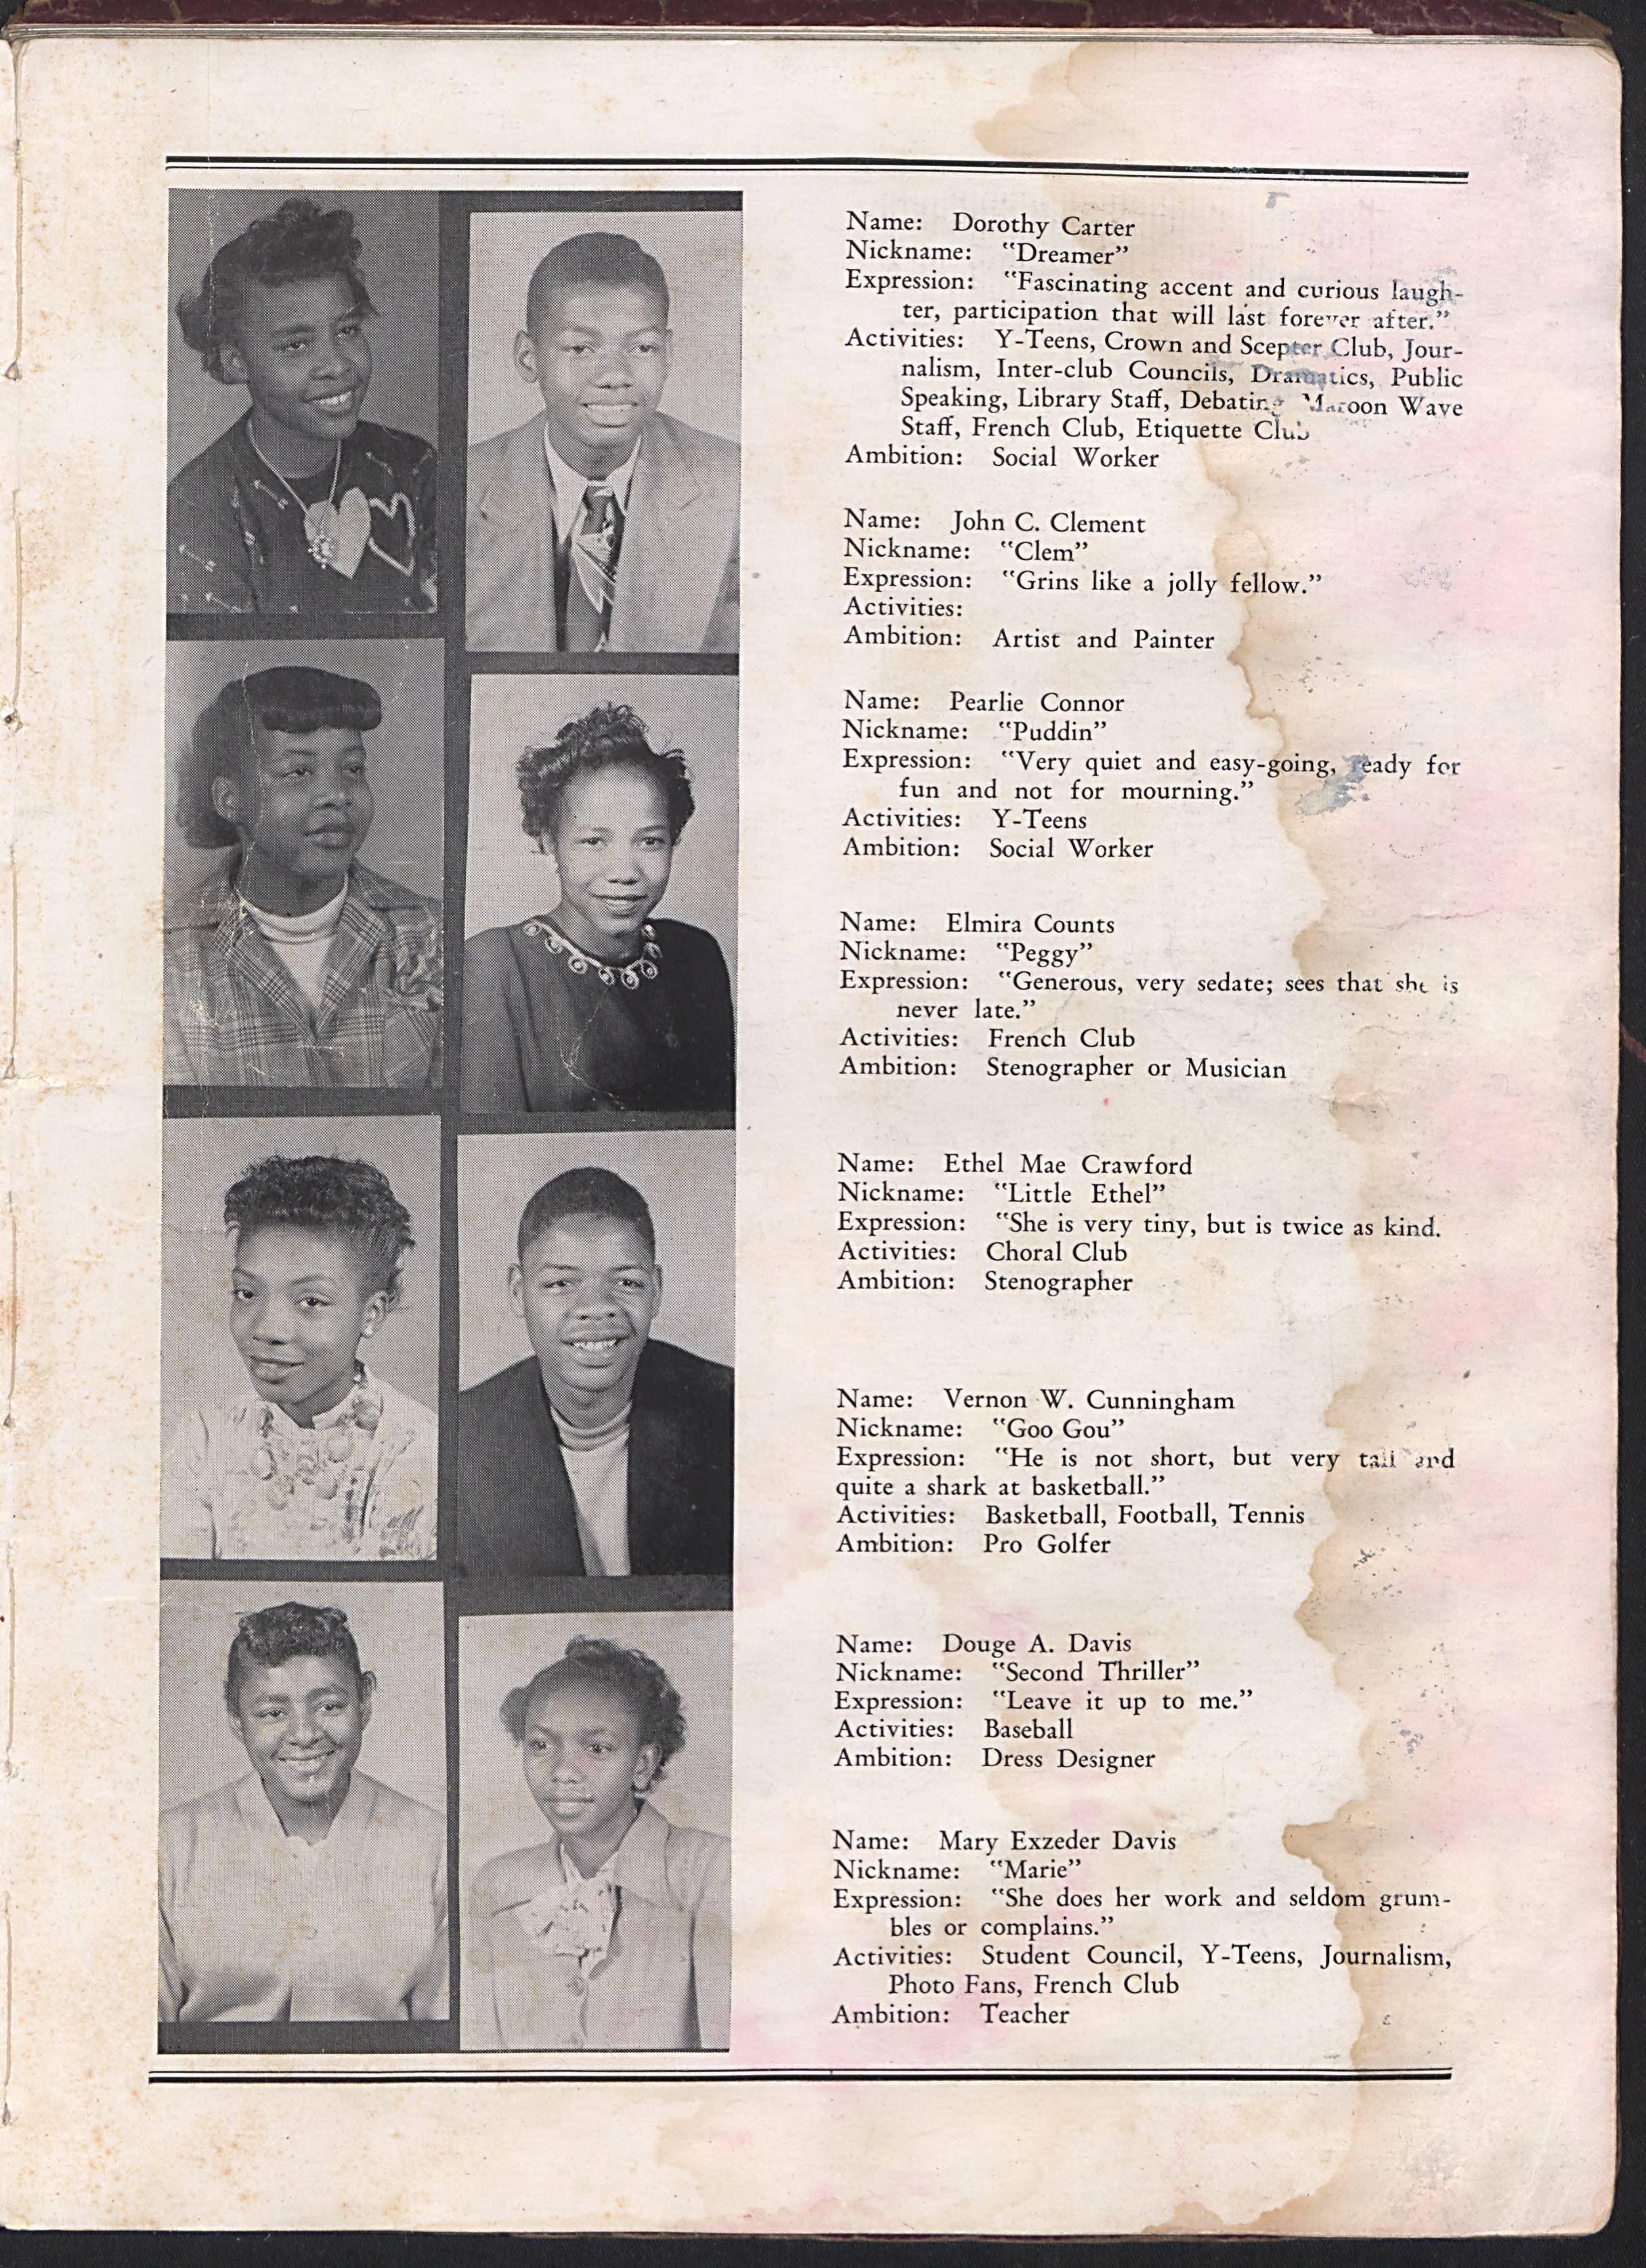 Name: Dorothy Carter
Nickname: "Dreamer"
Expression: "Fascinating accent and curious laugh-
ter, participation that will last forever after."
Activities: Y-Teens, Crown and Scepter Club, Jour-
nalism, Inter-club Councils, Dramatics, Public
Speaking, Library Staff, Debating Maroon Wave
Staff, French Club, Etiquette Club
Ambition: Social Worker
Name: John C. Clement
Nickname: "Clem"
Expression: "Grins like a jolly fellow."
Activities:
Ambition: Artist and Painter
Name: Pearlie Connor
Nickname: "Puddin"
Expression: "Very quiet and easy-going, ready for
fun and not for mourning."
Activities: Y-Teens
Ambition: Social Worker
Name: Elmira Counts
Nickname: "Peggy"
Expression: "Generous, very sedate; sees that she is
never late."
Activities: French Club
Ambition: Stenographer or Musician
Name: Ethel Mae Crawford
Nickname: "Little Ethel"
Expression: "She is very tiny, but is twice as kind.
Activities: Choral Club
Ambition: Stenographer
Name: Vernon W. Cunningham
Nickname: "Goo Gou"
Expression: "He is not short, but very tall and
quite a shark at basketball."
Activities: Basketball, Football, Tennis
Ambition: Pro Golfer
Name: Douge A. Davis
Nickname: "Second Thriller"
Expression: "Leave it up to me."
Activities: Baseball
Ambition: Dress Designer
Name: Mary Exzeder Davis
Nickname: "Marie"
Expression: "She does her work and seldom grum-
bles or complains."
Activities: Student Council, Y-Teens, Journalism,
Photo Fans, French Club
Ambition: Teacher